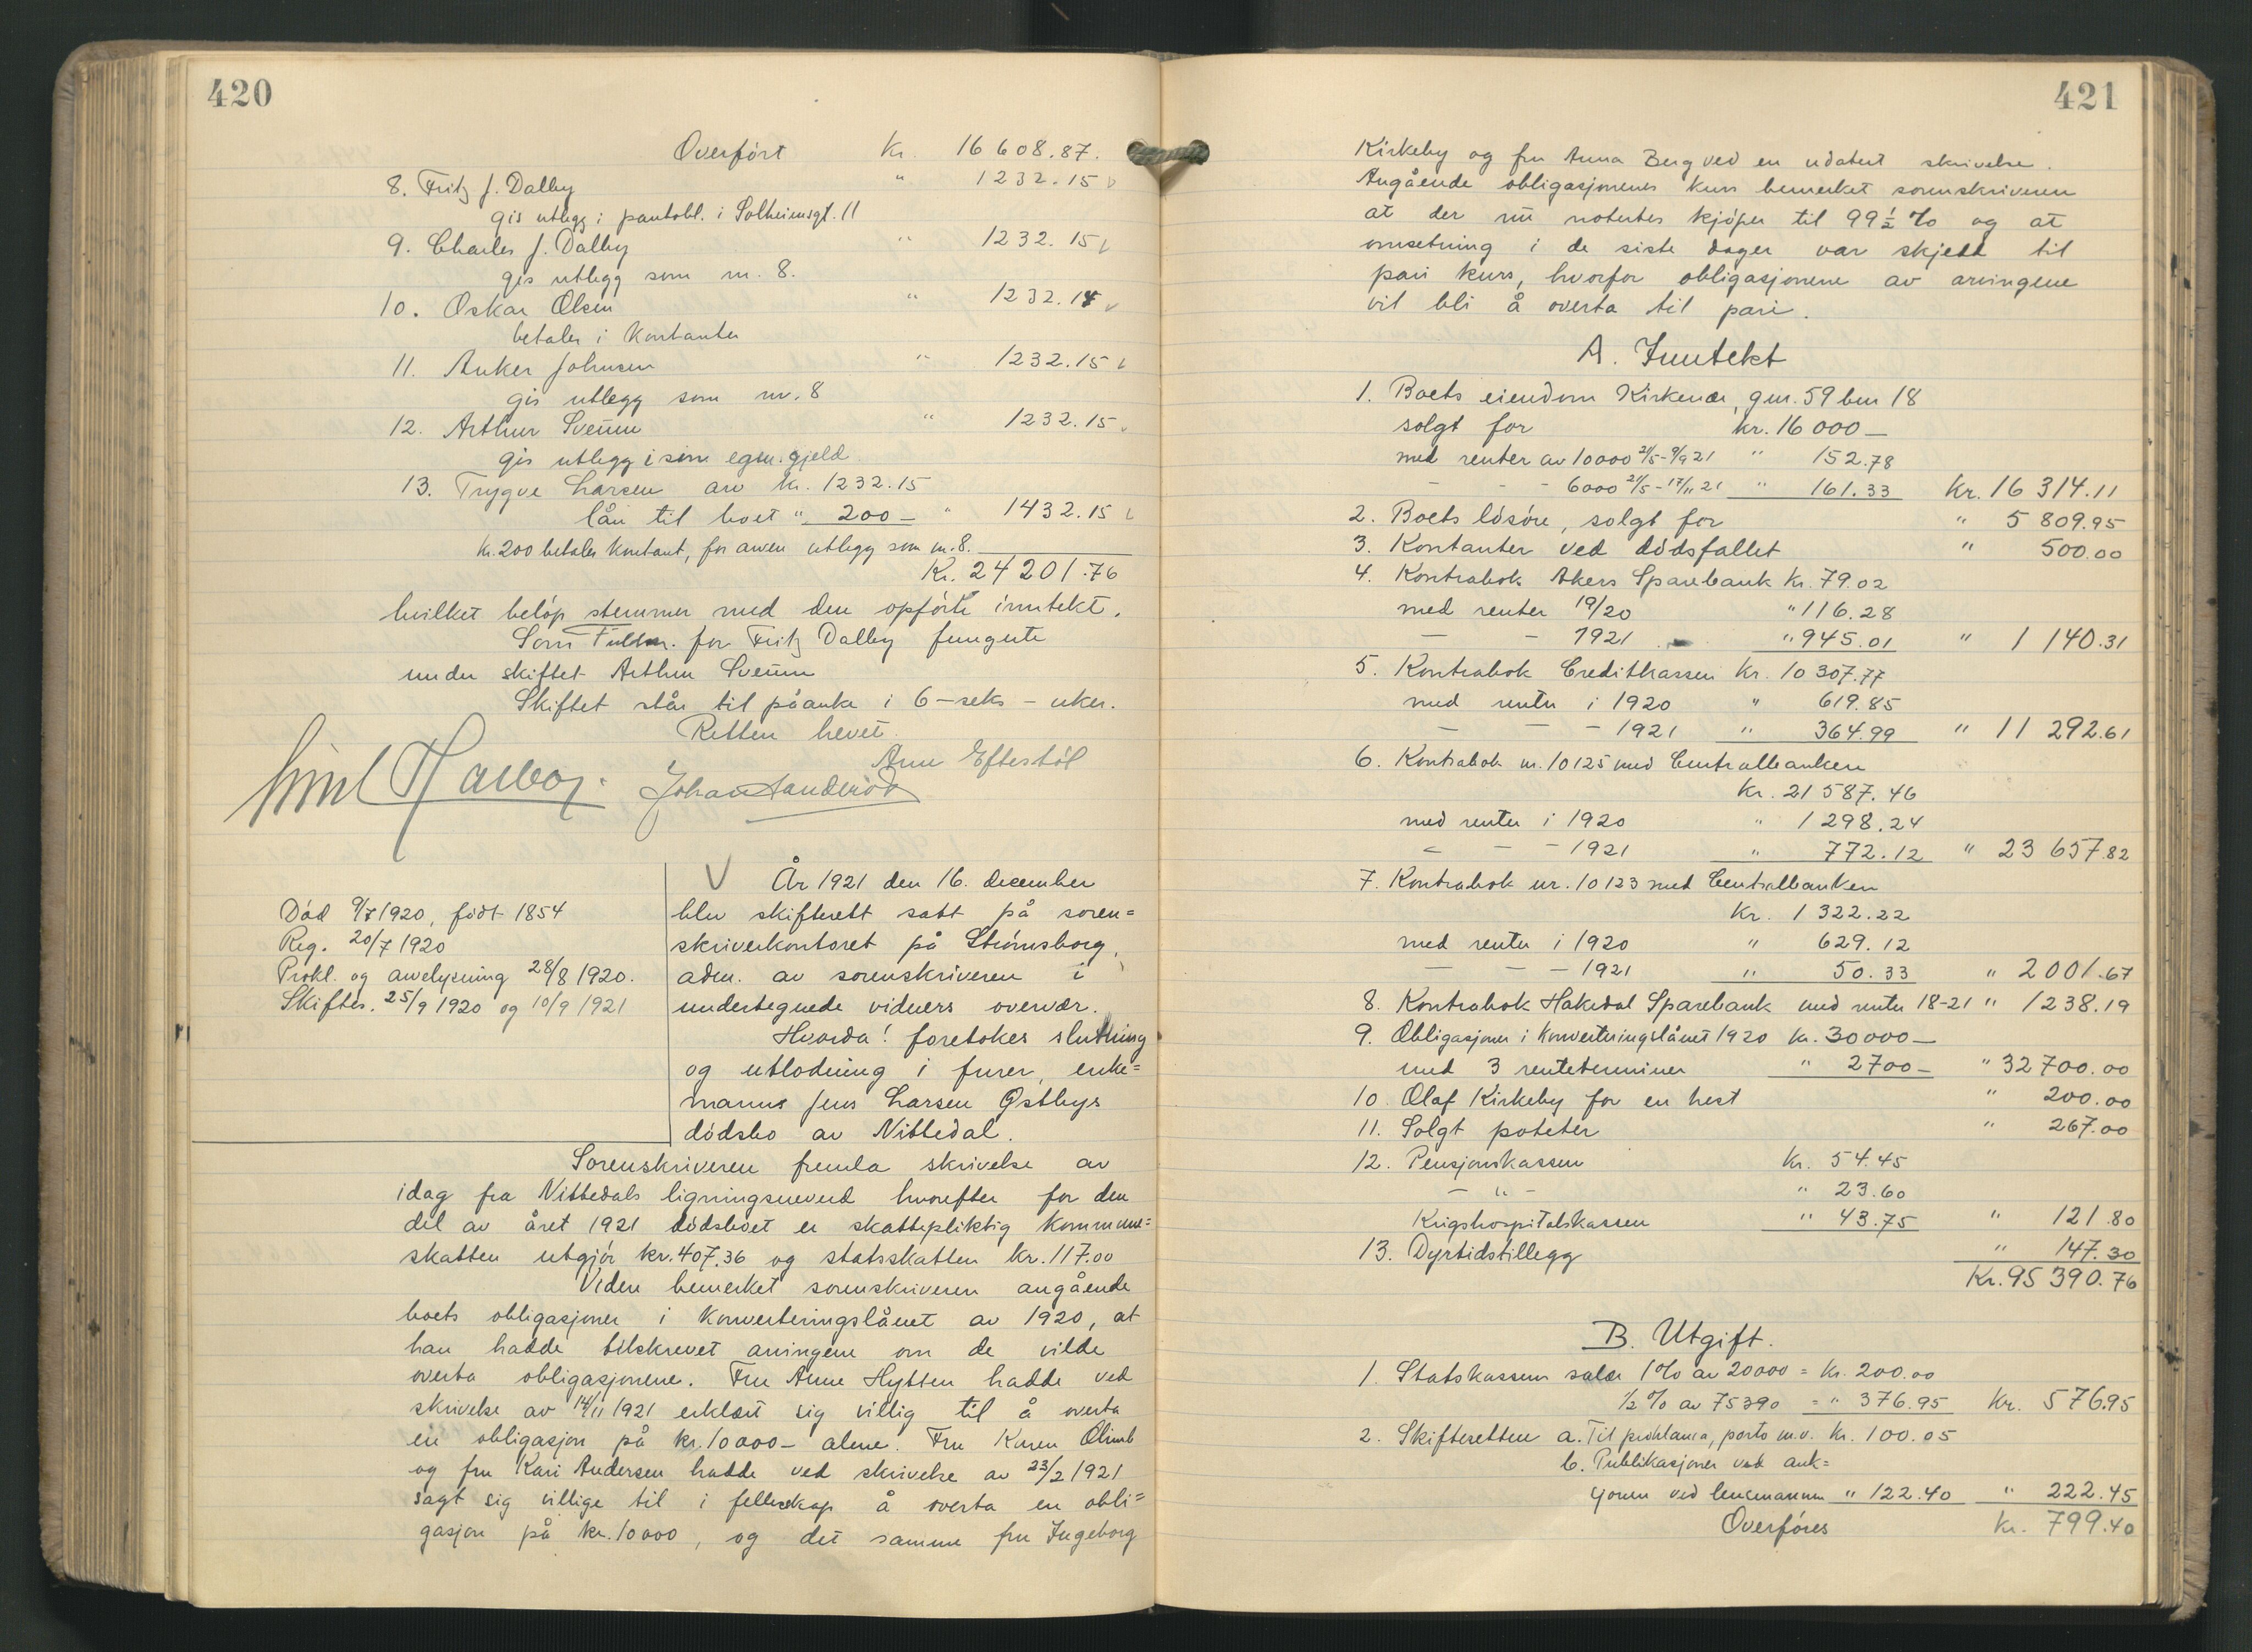 420
Overført Kr. 16 608.87.
8. Fritz J. Dalby " 1232.15
gis utlegg i pantobl. i Solheimsgt. 11
9. Charles J. Dalby " 1232.15
gis utlegg som nr. 8.
10. Oskar Olsen " 1232.14
betales i kontanter
11. Anker Johnsen " 1232.15
gis utlegg som nr. 8
12. Arthur Sveum " 1232.15
gis utlegg i sin egen gjeld
13. Trygve Larsen arv kr. 1232.15
lån til boet " 200 — " 1432.15
Kr. 200 betales kontant, for arven utlegg som nr. 8.
Kr. 24 201.76
hvilket beløp stemmer med den opførte inntekt.
Som Fullm. for Fritz Dalby fungerte
under skiftet Arthur Sveum
Skiftet står til påanke i 6 – seks – uker.
Retten hevet.
Arne Eftestøl
Johan Sanderød
Død 9/7 1920, født 1854
Reg. 20/7 1920
Prokl. og avvelysning 28/8 1920.
Skiftes. 25/9 1920 og 10/9 1921
År 1921 den 16. december
blev skifterett satt på soren=
skriverkontoret på Strømsborg,
adm. av sorenskriveren i
undertegnede vidners overvær.
Hvorda! foretokes slutning
og utlodning i furer, enke=
manns Jens Larsen Østbys
dødsbo av Nittedal.
Sorenskriveren fremla skrivelse av
idag fra Nittedals ligningsnevnd hvorefter for den
del av året 1921 dødsboet er skattepliktig kommune=
skatten utgjør kr. 407.36 og statsskatten kr. 117.00
Videre bemerket sorenskriveren angående
boets obligasjoner i Konverteringslånet av 1920, at
han hadde tilskrevet arvingene om de vilde
overta obligasjonene. Fru Anne Hytten hadde ved
skrivelse av 14/11 1921 erklært sig villig til å overta
en obligasjon på kr. 10000 – alene. Fru Karen Olimb
og fru Kari Andersen hadde ved skrivelse av 23/2 1921
sagt sig villige til i fellesskap å overta en obli=
gasjon på kr. 10000, og det samme fru Ingeborg
421
Kirkeby og fru Anna Berg ved en udatert skrivelse.
Angående obligasjonenes kurs bemerket sorenskriveren
at der nu notertes kjøper til 99 1/2 % og at
omsetning i de siste dager var skjedd til
pari kurs, hvorfor obligasjonene av arvingene
vil bli å overta til pari.
A. Inntekt
1. Boets eiendom Kirkenær, gnr. 59 bnr 18
solgt for kr. 16 000 —
med renter av 10000 21/5 – 9/9 21 " 152.78
– – – 6000 21/5 – 17/11 21 " 161.33 Kr. 16 314.11
2. Boets løsøre, solgt for " 5 809.95
3. Kontanter ved dødsfallet " 500.00
4. Kontrabok Akers Sparebank Kr. 79.02
med renter 19/20 " 116.28
– – 1921 " 945.01 " 1 140.31
5. Kontrabok Creditkassen Kr. 10 307.77
med renter i 1920 " 619.85
– – – 1921 " 364.99 " 11 292.61
6. Kontrabok nr. 10125 med Centralbanken
Kr. 21 587.46
med renter i 1920 " 1 298.24
– – – 1921 " 772.12 " 23 657.82
7. Kontrabok nr. 10123 med Centralbanken
Kr. 1 322.22
med renter i 1920 " 629.12
– – – 1921 " 50.33 " 2 001.67
8. Kontrabok Hakedal Sparebank med renter 18-21 " 1 238.19
9. Obligasjoner i Konverteringslånet 1920 kr. 30000 —
med 3 renteterminer " 2700 — " 32 700.00
10. Olaf Kirkeby for en hest " 200.00
11. Solgt poteter " 267.00
12. Pensjonskassen Kr. 54.45
– " – " 23.60
Krigshospitalskassen " 43.75 " 121.80
13. Dyrtidstillegg " 147.30
Kr. 95 390.76
B. Utgift.
1. Statskassens salær 1% av 20000 = Kr. 200.00
1/2 % av 75390 = " 376.95 Kr. 576.95
2. Skifteretten a. Til proklama, porto m.v. Kr. 100.05
b. Publikasjoner ved auk=
sjonen ved lensmannen " 122.40 " 222.45
Overføres Kr. 799.40